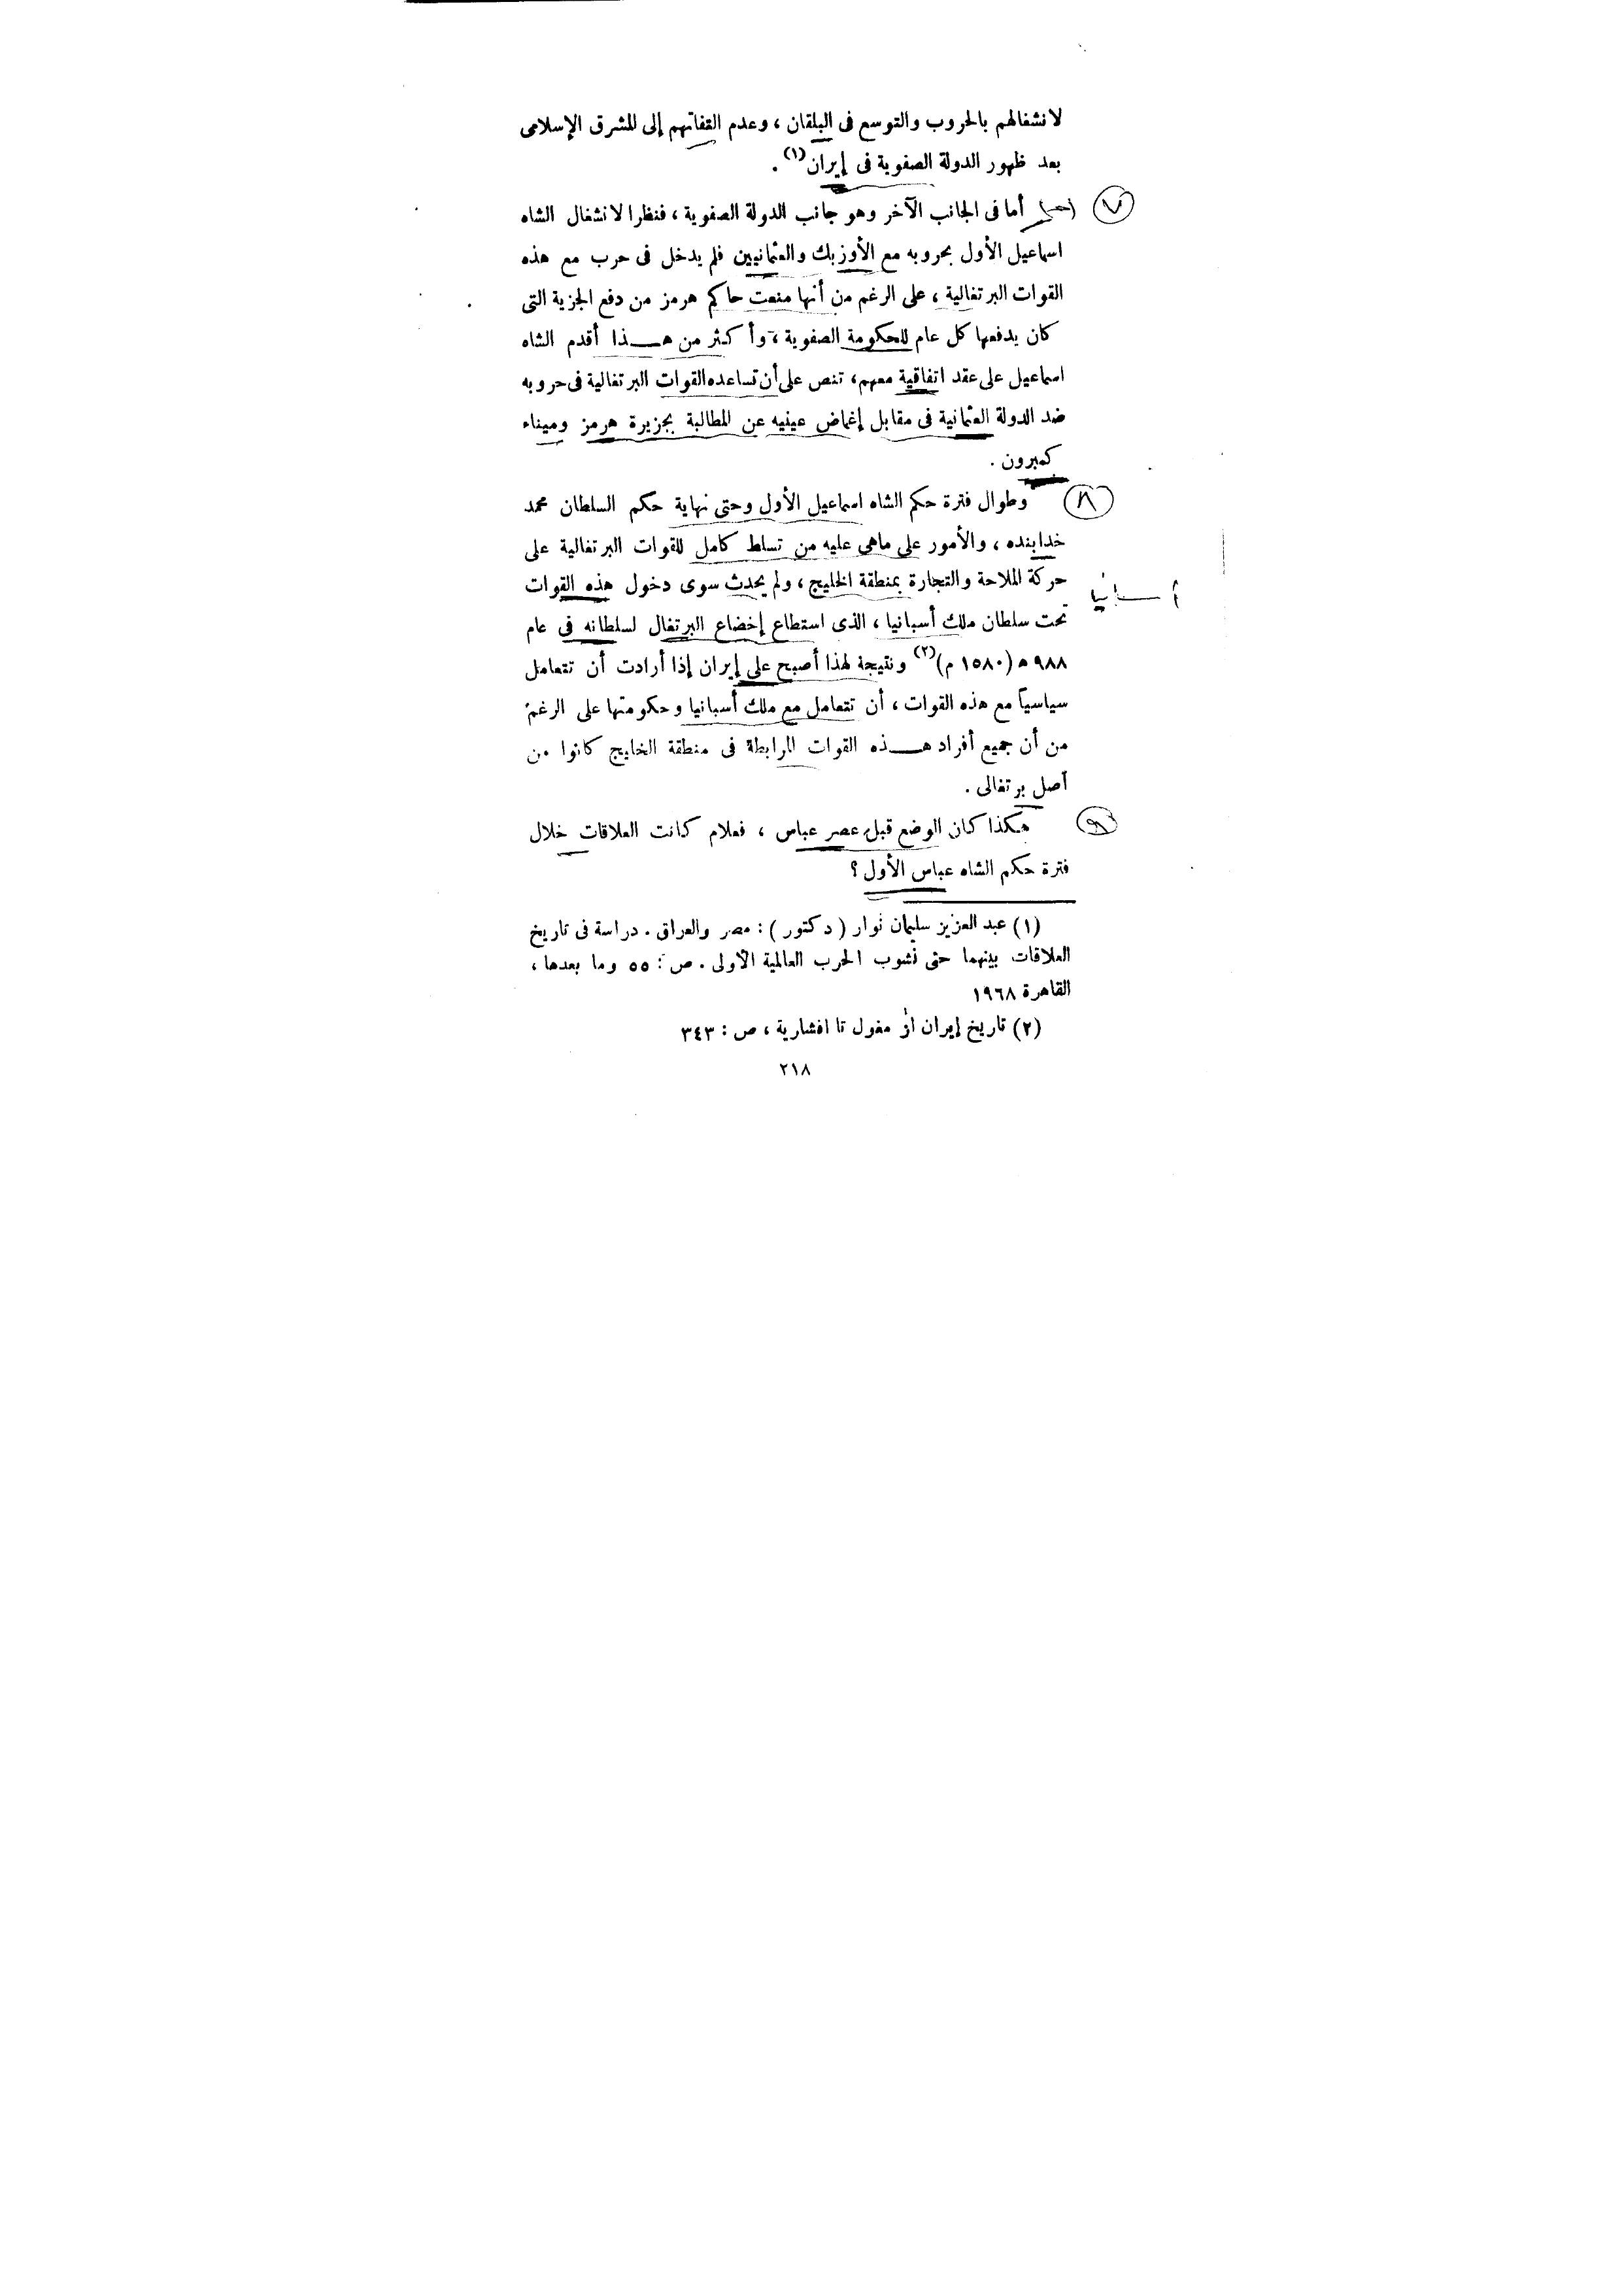 لانشغالهم بالحروب والتوسع فى البلقان ، وعدم التفاتهم إلى المشرق الإسلامى
بعد ظهور الدولة الصفوية فى إيران (١) .
(٧) أما فى الجانب الآخر وهو جانب الدولة الصفوية ، فنظرا لانشغال الشاه
اسماعيل الأول بحروبه مع الأوزبك والعثمانيين فلم يدخل فى حرب مع هذه
القوات البرتغالية ، على الرغم من أنها منعت حاكم هرمز من دفع الجزية التى
كان يدفعها كل عام للحكومة الصفوية ، وأكثر من هــذا أقدم الشاه
اسماعيل على عقد اتفاقية معهم ، تنص على أن تساعده القوات البرتغالية فى حروبه
ضد الدولة العثمانية فى مقابل إغماض عينيه عن المطالبة بجزيرة هرمز وميناء
كمبرون .
(٨) وطوال فترة حكم الشاه اسماعيل الأول وحتى نهاية حكم السلطان محمد
خدابنده ، والأمور على ماهى عليه من تسلط كامل للقوات البرتغالية على
حركة الملاحة والتجارة بمنطقة الخليج ، ولم يحدث سوى دخول هذه القوات
أسبانيا
تحت سلطان ملك أسبانيا ، الذى استطاع إخضاع البرتغال لسلطانه فى عام
٩٨٨ ه (١٥٨٠ م) (٢) ونتيجة لهذا أصبح على إيران إذا أرادت أن تتعامل
سياسياً مع هذه القوات ، أن تتعامل مع ملك أسبانيا وحكومتها على الرغم
من أن جميع أفراد هــذه القوات المرابطة فى منطقة الخليج كانوا من
أصل برتغالى .
(٩) هكذا كان الوضع قبل عصر عباس ، فعلام كانت العلاقات خلال
فترة حكم الشاه عباس الأول ؟
(١) عبد العزيز سليمان نوار ( دكتور ) : مصر والعراق . دراسة فى تاريخ
العلاقات بينهما حتى نشوب الحرب العالمية الأولى . ص : ٥٥ وما بعدها ،
القاهرة ١٩٦٨
(٢) تاريخ إيران از مغول تا افشارية ، ص : ٣٤٣
٢١٨